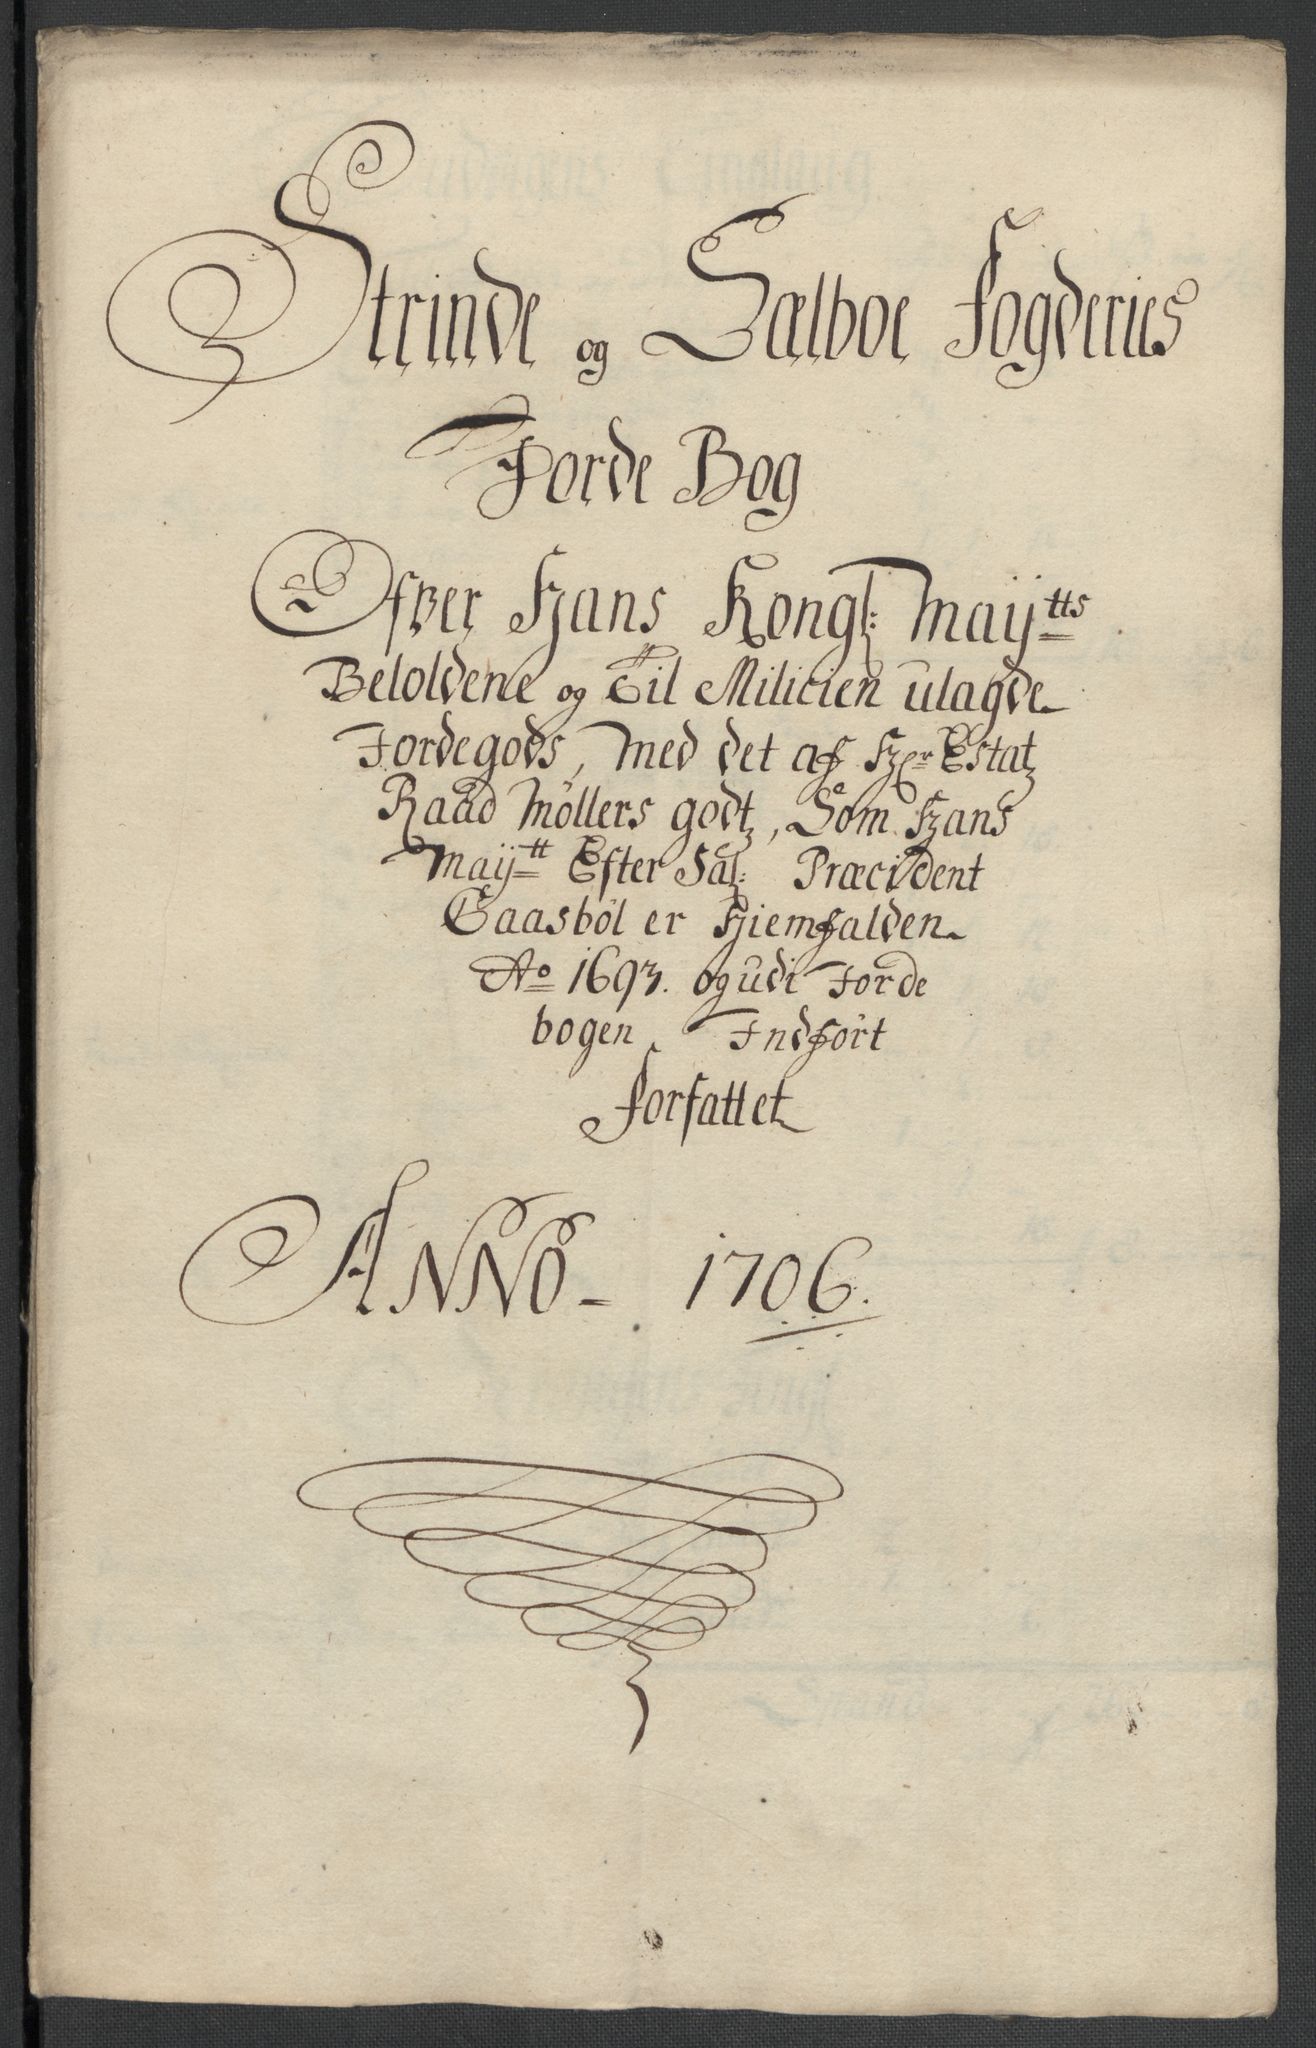 Strinde og Sælboe Fogderies
Jorde Bog
Ofver Hans Kongl: Maÿtts
Beholdene og Til Milicien ulagde
Jordegods, Med det af Hr Estatz
Raad Møllers godtz, Som Hans
Maÿtt Efter Sal: Præcident
Gaasbøl er Hiemfalden
Ao 1693. og udi Jorde
bogen Indført
forfattet
ANNO - 1706.